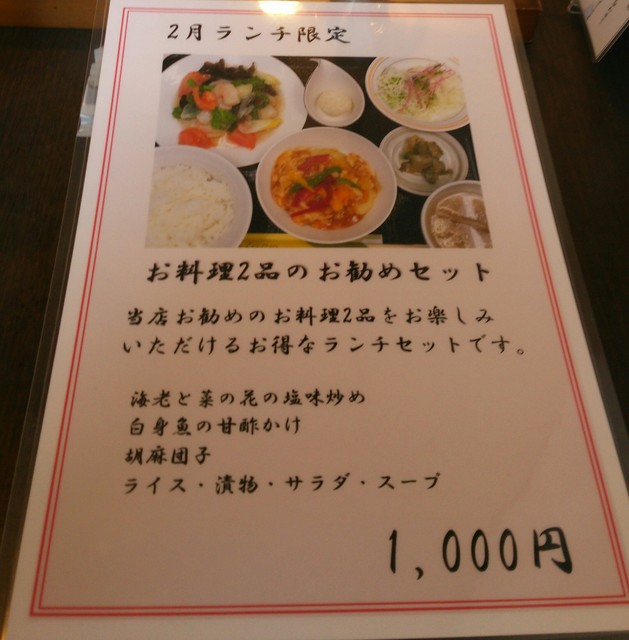 2月ランチ限定
お料理2品のお勧めセット
当店お勧めのお料理2品をお楽しみ
いただけるお得なランチセットです。
海老と菜の花の塩味炒め
白身魚の甘酢かけ
胡麻団子
ライス・漬物・サラダ・スープ
1,000円